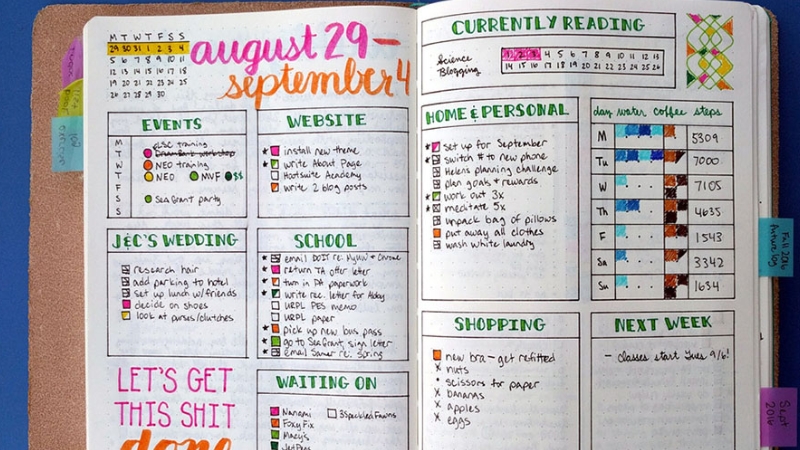 M T W T F S S
29 30 31 1 2 3 4
5 6 7 8 9 10 11
12 13 14 15 16 17 18
19 20 21 22 23 24 25
26 27 28 29 30
august 29 –
september 4
EVENTS
M
T training
W NEO training
T NEO MVF $$
F
S Sea Grant party
S
WEBSITE
install new theme
write About Page
Hootsuite Academy
write 2 blog posts
J&C'S WEDDING
research hair
add parking to hotel
set up lunch w/friends
decide on shoes
look at purses/clutches
SCHOOL
email DoIT re: MyUW + Chrome
return TA offer letter
turn in DA paperwork
write rec. letter for Abby
URDL PES memo
URDL paper
pick up new bus pass
go to Sea Grant, sign letter
email Samer re: Spring
LET'S GET
THIS SHIT
done
WAITING ON
Nanami 3 Speckled Fawns
Foxy Fix
Macy's
JetPens
CURRENTLY READING
Science Blogging
1 2 3 4 5 6 7 8 9 10 11 12 13
14 15 16 17 18 19 20 21 22 23 24 25 26
HOME & PERSONAL
set up for September
switch # to new phone
Helens planning challenge
plan goals + rewards
work out 3x
meditate 5x
unpack bag of pillows
put away all clothes
wash white laundry
day water coffee steps
M 5309
Tu 7000
W 7105
Th 4635
F 1543
Sa 3342
Su 1634
SHOPPING
new bra – get refitted
nuts
scissors for paper
bananas
apples
eggs
NEXT WEEK
– classes start Tues 9/6!
Fall 2016
future log
Sept
2016